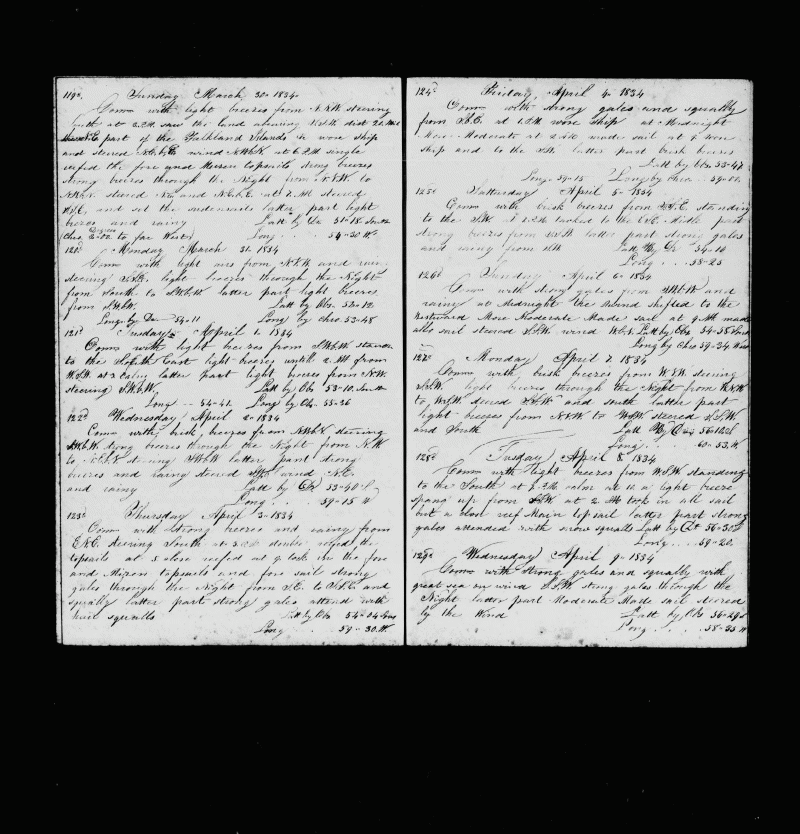 119d. Sunday March 30. 1834.
Coms with light breezes from N.N.W. steering
South at 2.P.M saw the land bearing W.S.W. dist 20. Mls
part of the Falkland Islands at wore ship
and steered N.E.b.E. wind N.W.b.N. at 6 P.M single
reefed the fore and Mizen topsails strong breezes
strong breezes through the Night from N.N.W. to
steered and at 7. AM steered
and set the latter part light
brezes and rainy Latt by Dr 51-18. South
Chro to far West) Long . . . 54-30 W.
120d Monday March 31. 1834
Coms with light airs from and rain
steering light breezes through the Night
from South to S.W.b.W. latter part light breezes
from S.W.b.W. Latt by Obs. 53-12
Long. by Dr 54-11 Long by Chro. 53-48
121st Tuesday April 1. 1834
Coms with light breezes from S.W.b.W. standing
to the South East light breezes until 2 AM from
W.S.W. at 3 calm latter part light breezes from N.W.
steering S.W.b.W. Latt by Ob 53-10 South
Long -- 54-41. Long by Ch. 55-36
122d Wednesday April 2. 1834
Coms with brisk breezes from N.W.b.N. steering
S.W.b.W. strong breezes through the Night from N.W
to steering S.W.b.W. latter part strong
breezes and rainy steered wind N.E.
and rainy Latt by Dr 53-40 S
Long . . . 59-15 W
123d Thursday April 3. 1834
Coms with strong breezes and rainy from
E.N.E. steering South at 3. double reefed the
topsails at 5 close reefed at 9 took in the fore
and Mizen topsails and fore sail strong
gales through the Night from S.E. to and
squally latter part strong gales attend with
hail squalls Latt by Obs 54-24 Sou
Long . . . 59-30. W.
124th Friday, April 4. 1834
Coms with strong gales and squally
from S.E. at 1.P.M wore ship at Midnight
More Moderate at 2.AM made sail at 7 wore
ship and to the S.W. latter part brisk breezes
Latt by Obs 53-47
Long. 59-15 Long by Chro. 59-
125d Satturday April 5. 1834
Coms with brisk breezes from S.S.E. standing
to the S.W. at 2.P.M tacked to the E.N.E. Midle part
strong breezes from latter part strong gales
and rainy from Latt By Dr 54-10
Long . . 58-25
126d Sunday April 6. 1834
Coms with strong gales from and
rainy at Midnight the Wind shifted to the
Westward More Moderate Made sail at 9 AM made
all sail steered S.S.W. wind Latt by Obs 54-58 South
Long by Chro 59-34. West
127d Monday April 7. 1834
Coms with brisk breezes from W.N.W. steering
S.S.W. light breezes through the Night from
to W.S.W. steered S.S.W. and south latter part
light breezes from to W.S.W. steered S.S.W
and South Latt By Obs 56.12 S
Long . . . 60-53. W
128d Tusday April 8. 1834
Coms with light breezes from W.S.W. standing
to the South at 2.P.M calm at 10 a light breeze
spang up from S.S.W. at 2 AM took in all sail
but a close reef Main topsail latter part strong
gales attended with snow squalls Latt by Obs 56-30 S
Long . . . 59-20.
129d Wednesday April 9. 1834
Coms with strong gales and squally with
great sea on wind S.S.W. strong gales through the
Night latter part Moderate Made sail steered
by the Wind Latt by Obs 56-29 S
Long . . . 58-35 W